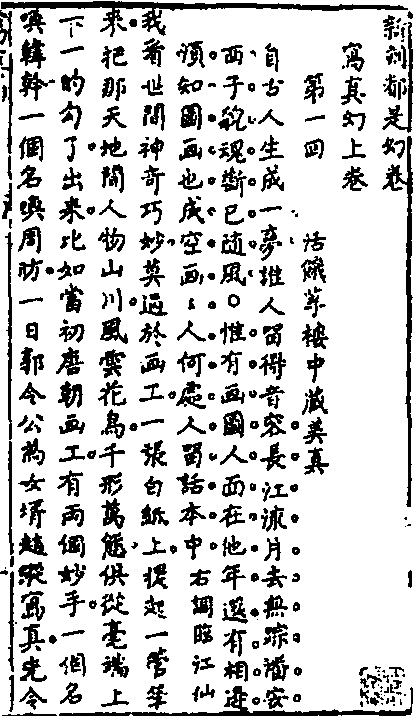 新刻都是幻卷
寫真幻上卷
第一回　活樓中藏美真
自古人生成一夢誰人留得音容長江流片去無踪潘安
西子貌魂斷已随風〇惟有画圖人面在他年還有相逢
須知圖画也成空画〻人何處人留話本中　右調臨江仙
我看世間神奇巧妙莫過於画工一張白紙上提起一管筆
来把那天地間人物山川風雲花鳥千形萬態俱從毫端上
下一的勾了出来比如當初唐朝画工有兩個妙手一個名
喚韓幹一個名喚周昉一日郭令公為女壻趙縱寫真先令